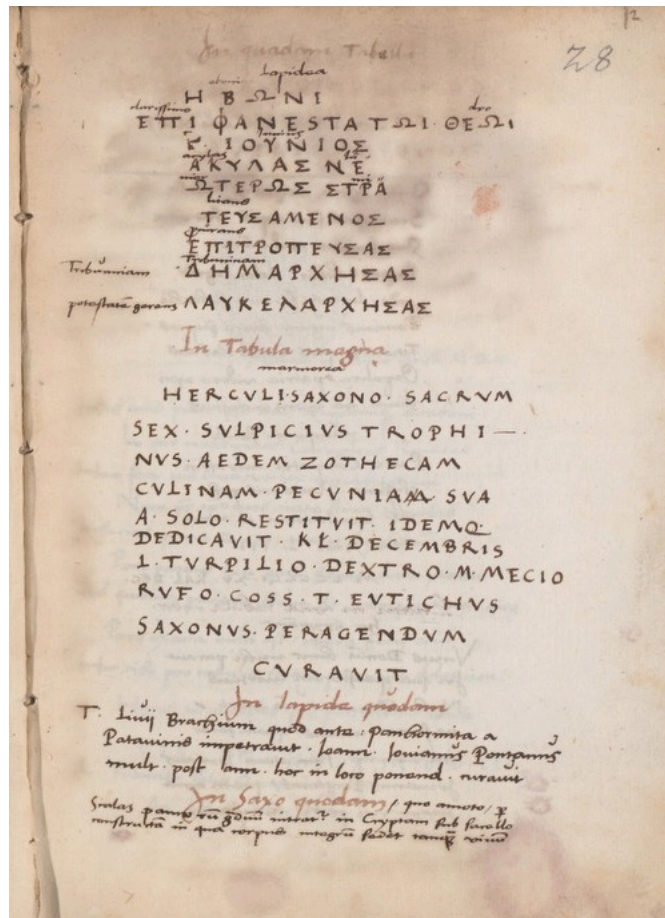 12
28
In quadam Tabella
lapidea
ΗΒΩΝΙ
clarissimo deo
ΕΠΙΦΑΝΕSΤΑΤΩΙ·ΘΕΩΙ
Γ. ΙΟΥΝΙΟΣ
ΑΚΥΛΑΣ ΝΕ
ΩΤΕΡΩΣ ΣΤΡΑ
ΤΕΥΣΑΜΕΝΟΣ
ΕΠΙΤΡΟΠΕΥΣΑΣ
Tribuniam ΔΗΜΑΡΧΗΣΑΣ
potestatē gerens ΛΑΥΚΕΛΑΡΧΗΣΑΣ
In Tabula magna
marmorea
HERCULI·SAXONO· SACRVM
SEX· SVLPICIVS TROPHI—·
NVS· AEDEM ZOTHECAM
CVLINAM· PECVNIAM SVA
A· SOLO· RESTITVIT· IDEMQ
DEDICAVIT· KŁ· DECEMBRIS
L· TVRPILIO· DEXTRO· M· MECIO
RVFO· COSS· T· EVTICHVS
SAXONVS· PERAGENDVM
CVRAVIT
In lapide quodam
T. Livii Brachium quod ante · Panhormita a
Patavinis impetravit · Ioann · Iovianus Pontanus
mult · post ann · hoc in loco ponend · curavit
In Saxo quodam / quo amoto /
Scalas intrat in Cryptam sub sacello
constructā in qua corpus integrū sedet vivū